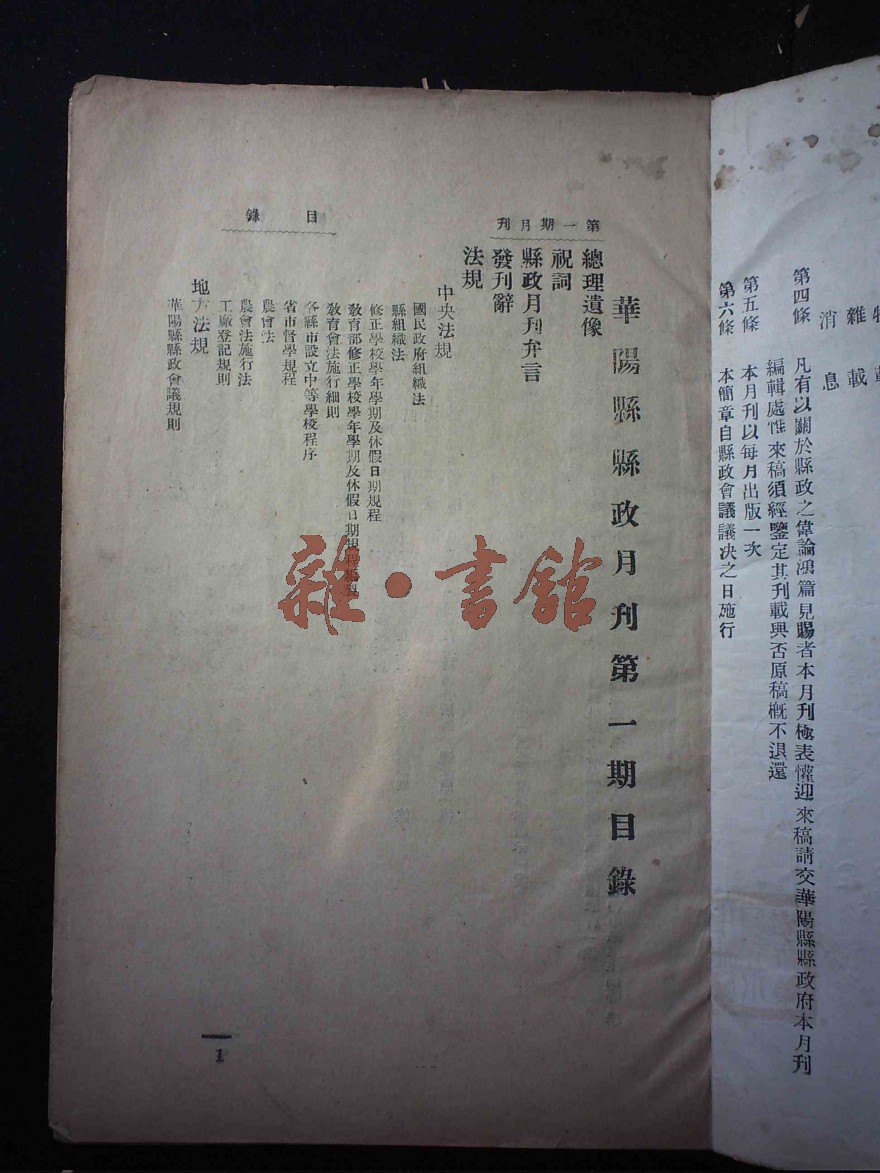 雜載
消息
第四條 凡有以關於縣政之偉論鴻篇見賜者本月刊極表懽迎來稿請交華陽縣縣政府本月刊
編輯處惟來稿須經鑒定其刊載與否原稿概不退還
第五條 本月刊以每月出版一次
第六條 本簡章自縣政會議議决之日施行
華陽縣縣政月刊第一期目錄
第一期月刊
總理遺像
祝詞
縣政月刊弁言
發刊辭
法規
中央法規
國民政府組織法
縣組織法
修正學校學年學期及休假日期規程
教育部修正學校學年學期及休假日期規程
教育會法施行細則
各縣市設立中等學校程序
省市督學規程
農會法
農會法施行法
工廠登記規則
地方法規
華陽縣縣政會議規則
目錄
1
雜·書館